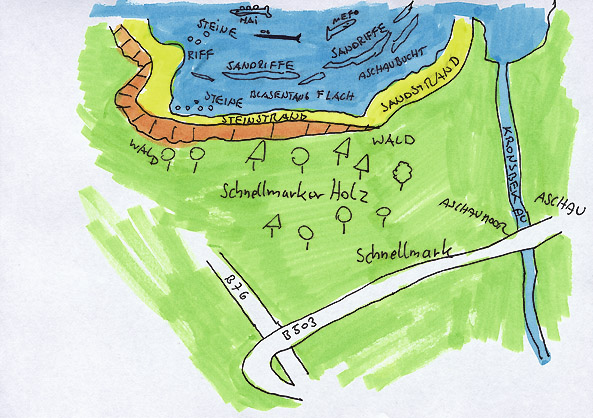 HAI
STEINE
MEFO
RIFF
SANDRIFFE
SANDRIFFE
ASCHAUBUCHT
STEINE BLASENTANG FLACH
SANDSTRAND
STEINSTRAND
WALD
WALD
KRONSBEKAU
Schnellmarker Holz
ASCHAUMOOR
ASCHAU
Schnellmark
B76
B503